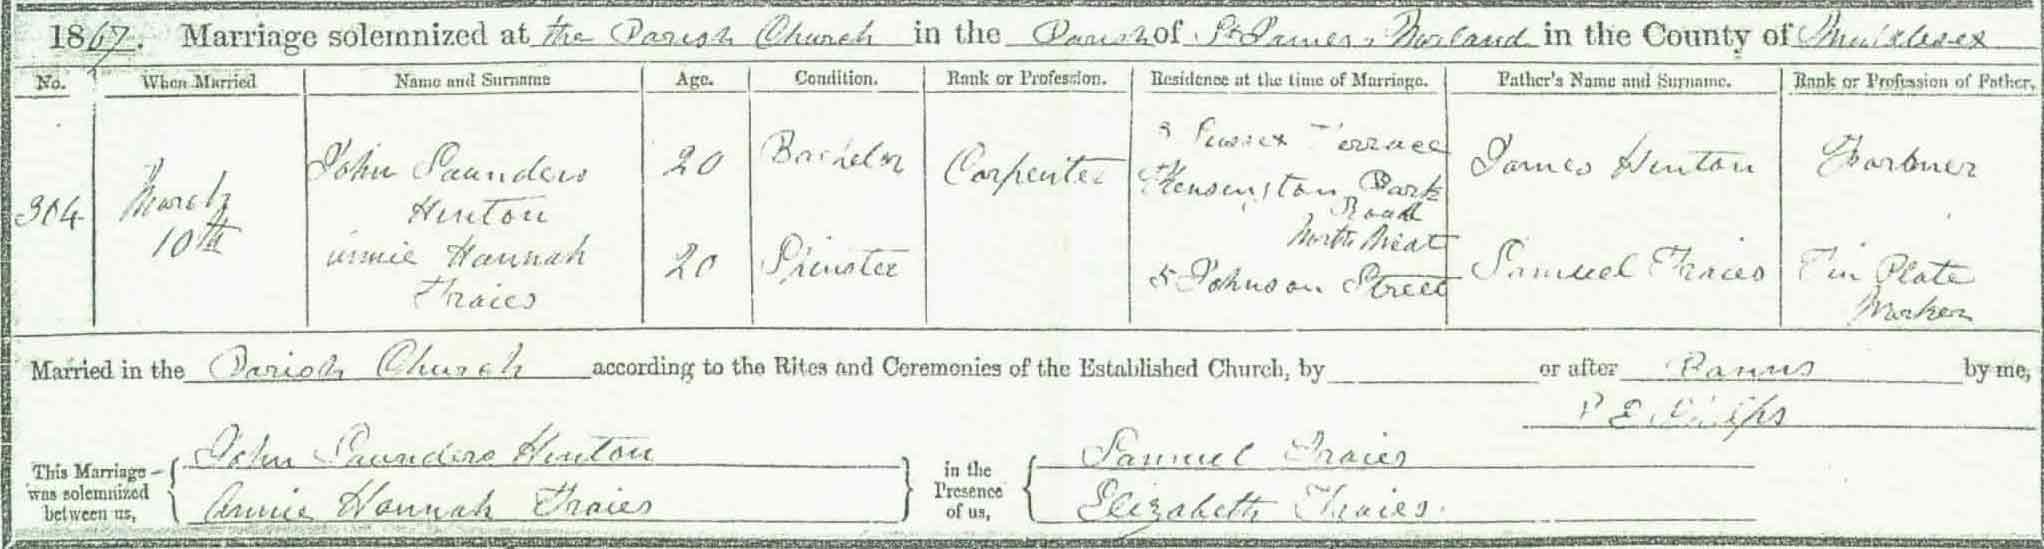 1867. Marriage solemnized at the Parish Church in the Parish of St James, Norland in the County of Middlesex
No. When Married Name and Surname Age. Condition. Rank or Profession. Residence at the time of Marriage. Father's Name and Surname. Rank or Profession of Father.
304 March 10th John Saunders Hinton 20 Bachelor Carpenter Sussex Terrace Kensington Park Road James Hinton
Annie Hannah Traies 20 Spinster 5 Johnson Street Samuel Traies Tin Plate Worker
Married in the Parish Church according to the Rites and Ceremonies of the Established Church, by or after Banns by me,
This Marriage was solemnized between us, John Saunders Hinton in the Presence of us, Samuel Traies
Annie Hannah Traies Elizabeth Traies.